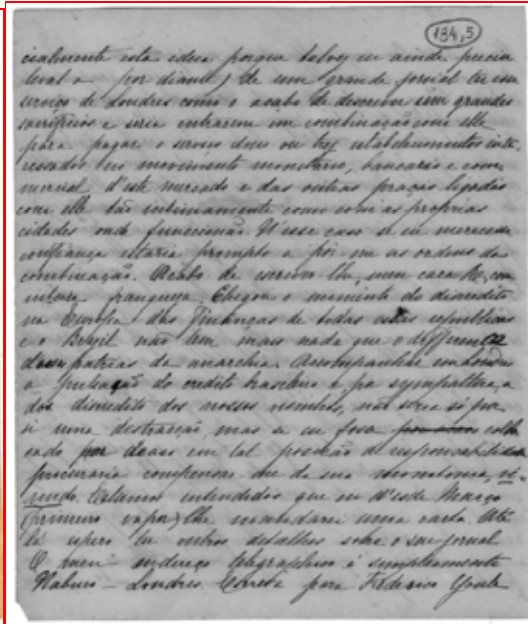 134,5
cialmente esta ideia porque talvez eu ainda precise
leval-a por diante) de um grande jornal ter um
serviço de Londres como o acabo de descrever sem grandes
sacrificios e seria entrarem em combinação com elle
para pagar o serviço dous ou trez estabelecimentos inte-
ressados no movimento monetario, bancario e com-
mercial d'este mercado e das outras praças ligadas
com elle tão intimamente como com as proprias
cidades onde funccionão. N'esse caso se eu merecesse
confiança estaria prompto a pôr-me as ordens da
combinação. Acabo de escrever-lhe, meu caro R, com
inteira franqueza. Chegou o momento do discredito
na Europa das Finanças de todas estas republicas
e o Brazil não tem mais nada que o differencie
d'essas patrias da anarchia. Acompanhar
a pulsação do credito brasileiro e por sympathia, a
do discredito dos nossos visinhos, não seria só por
si uma distracção, mas se eu fosse collo-
cado por acaso em tal posição de responsabilidade
procuraria compensar-me da sua monotonia, vi-
vendo. Estamos entendidos que eu d'esde Março
(primeiro vapor) lhe mandarei uma carta. Até
lá espero ter outros detalhes sobre o seu jornal
O meu endereço telegraphico é simplesmente
Nabuco - Londres. Escreva para Frederico Youle